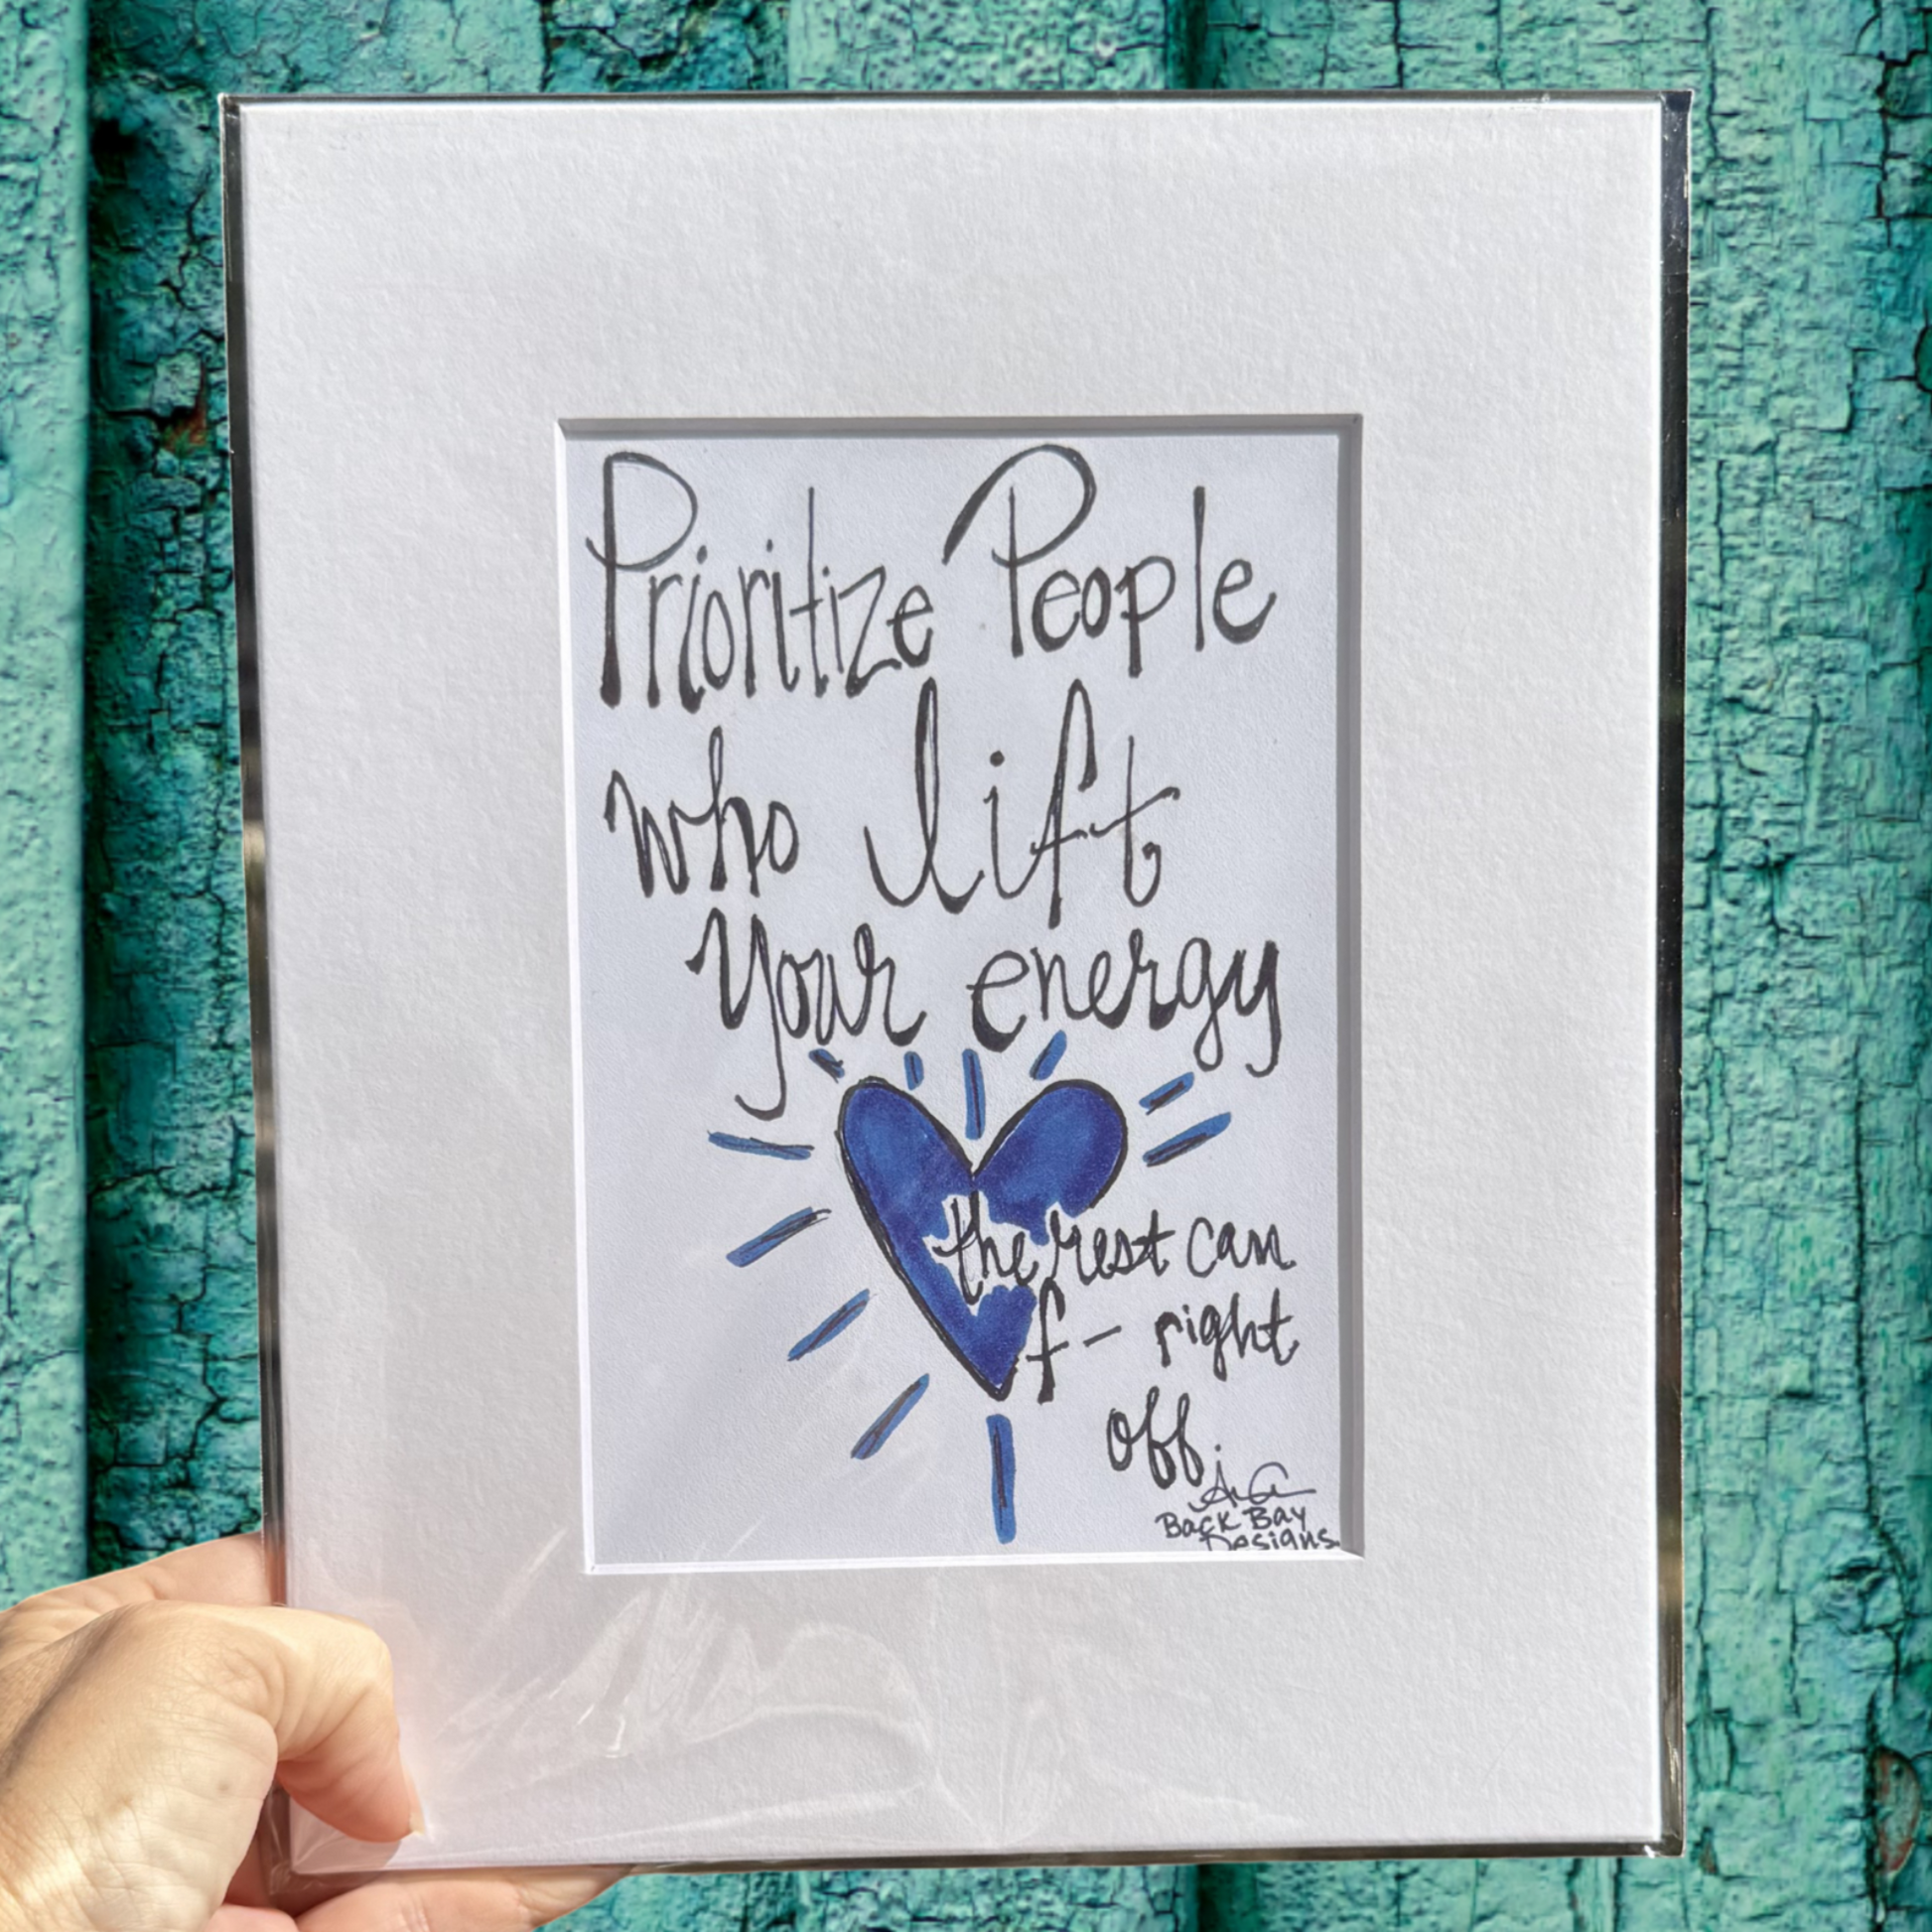 Prioritize People
who lift
your energy
the rest can
f— right
off.
Back Bay
Designs